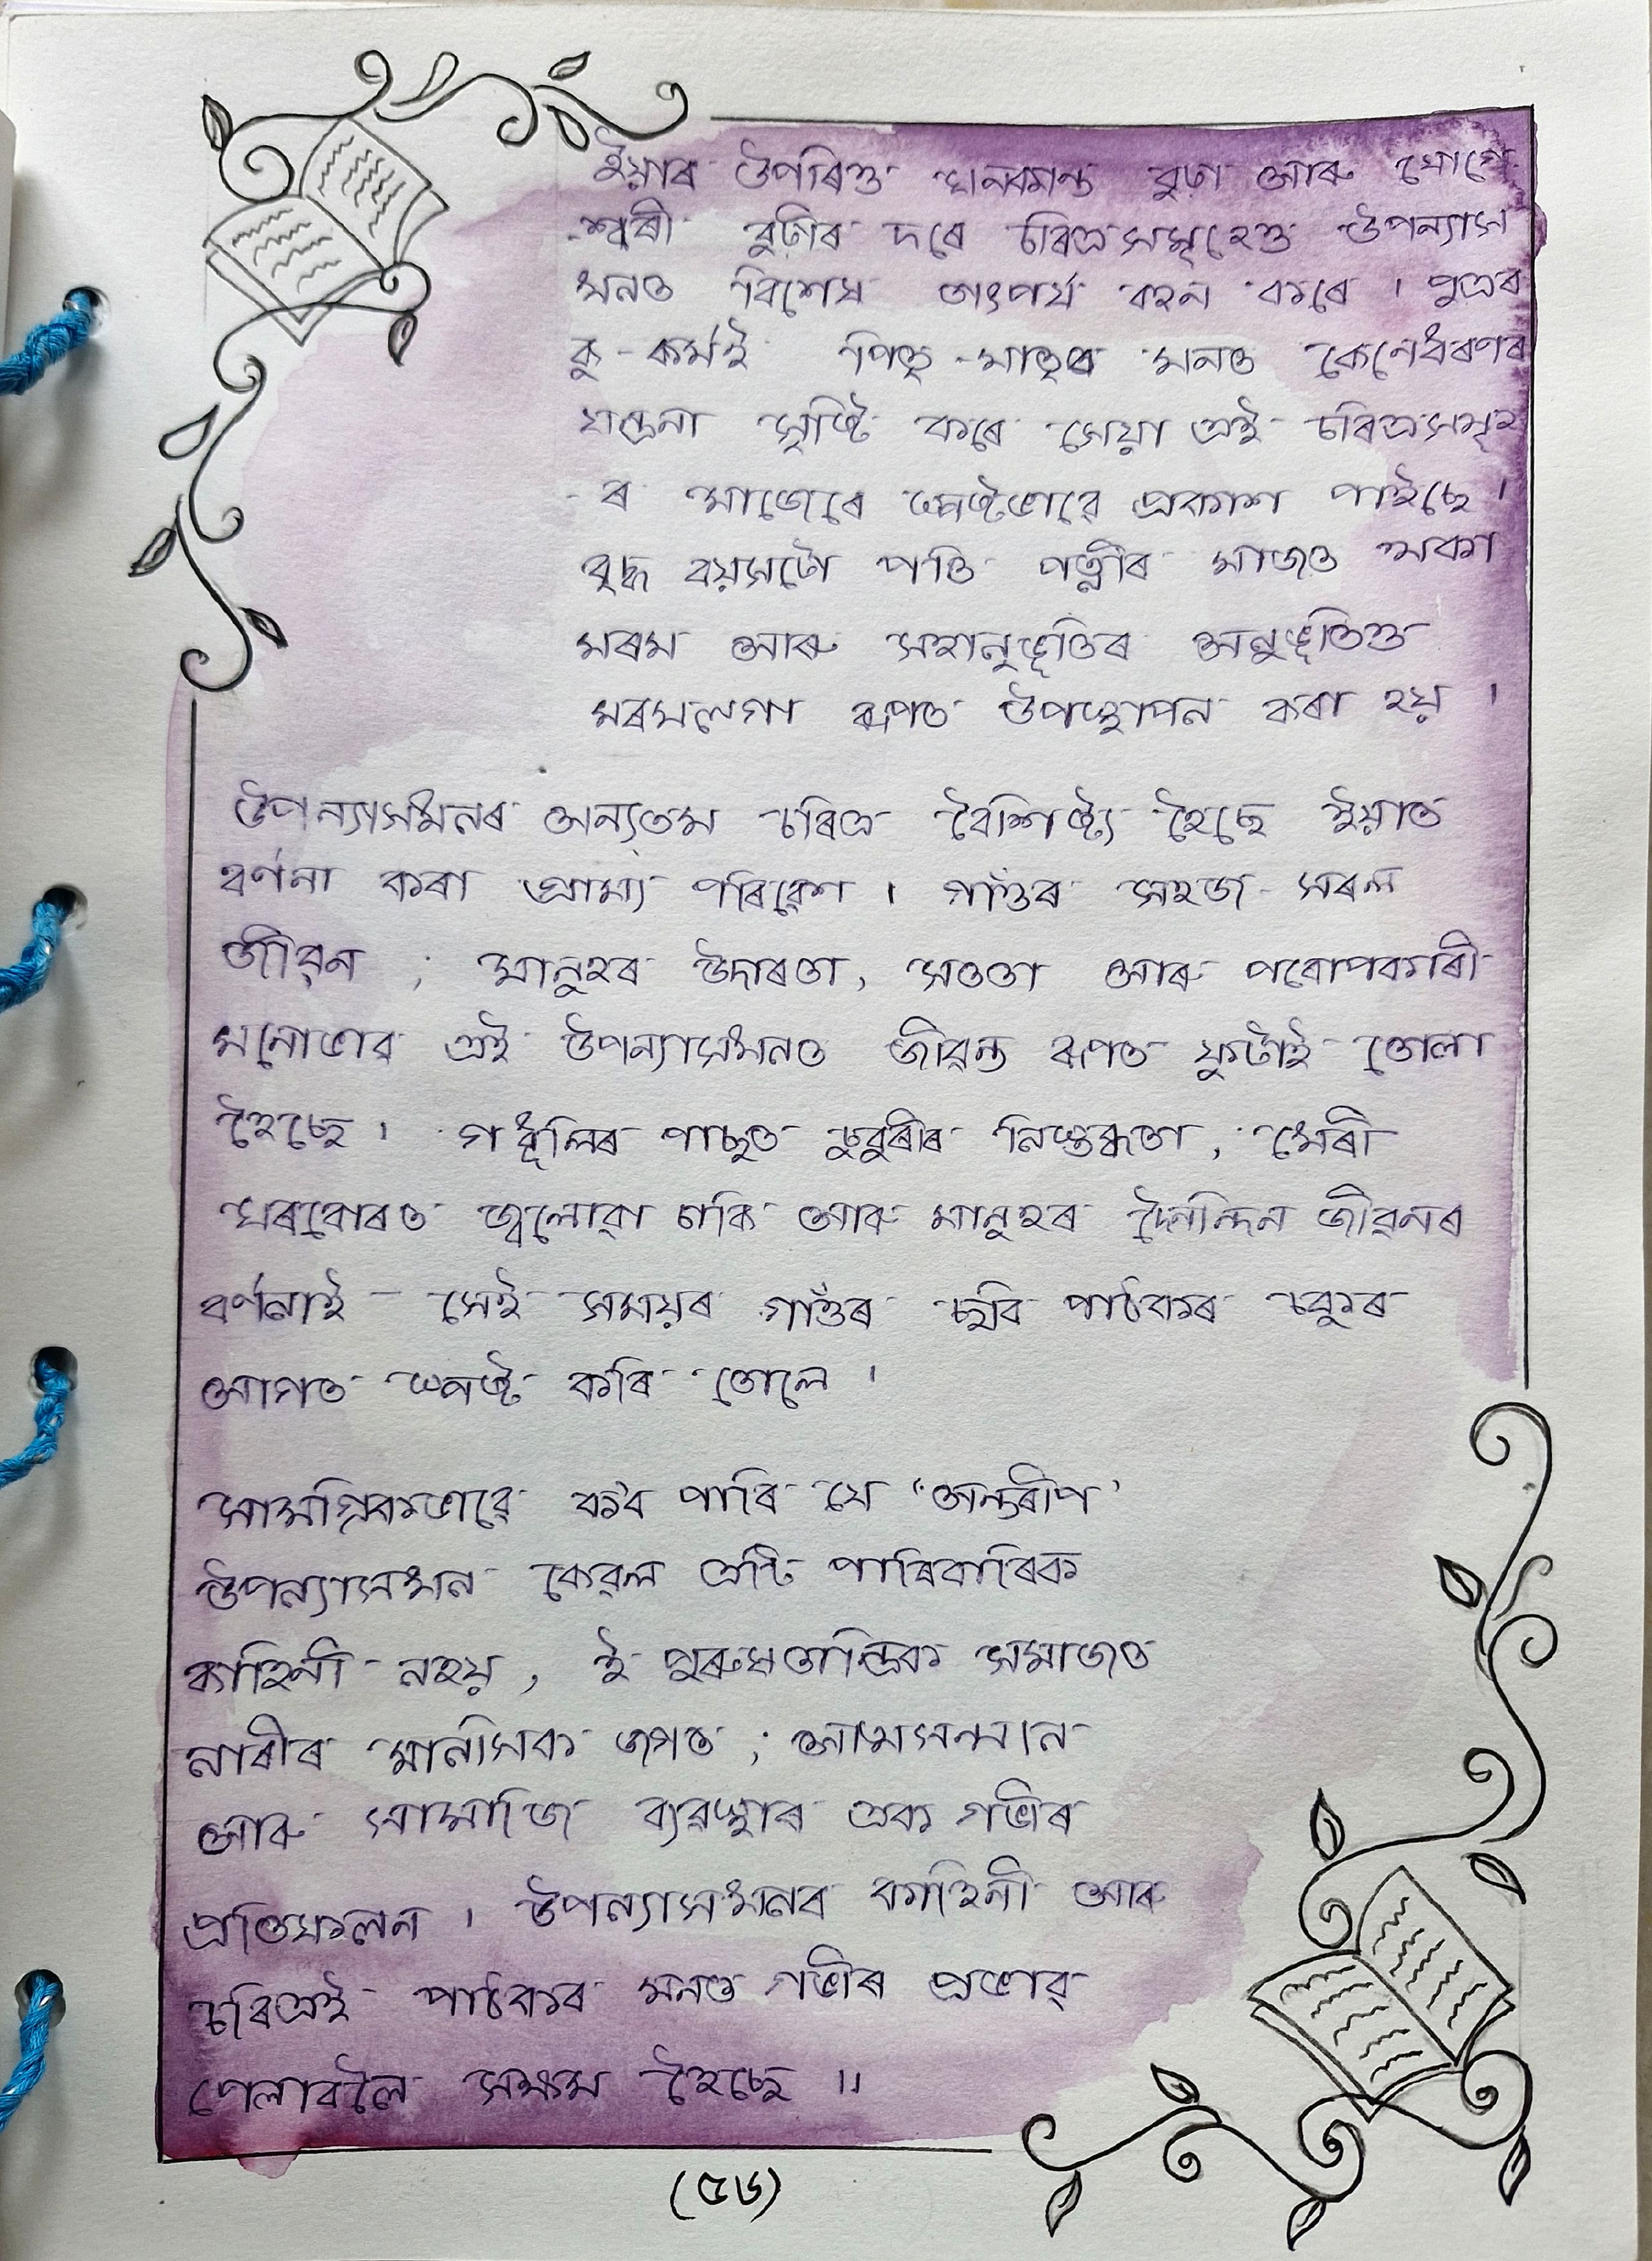 ইয়াৰ উপৰিও ঘনকান্ত বুঢ়া আৰু যোগে
-শ্বৰী বুঢ়ীৰ দৰে চৰিত্ৰসমূহেও উপন্যাস
খনত বিশেষ তাৎপৰ্য বহন কৰে । পুত্ৰৰ
কু-কৰ্মই পিতৃ-মাতৃৰ মনত কেনেধৰণৰ
যন্ত্ৰনা সৃষ্টি কৰে সেয়া এই চৰিত্ৰসমূহ
-ৰ মাজেৰে স্পষ্টভাৱে প্ৰকাশ পাইছে ।
বৃদ্ধ বয়সটো পতি পত্নীৰ মাজত থকা
মৰম আৰু সহানুভূতিৰ অনুভূতিও
মৰমলগা ৰূপত উপস্থাপন কৰা হয় ।
উপন্যাসখনৰ অন্যতম চৰিত্ৰ বৈশিষ্ট্য হৈছে ইয়াত
বৰ্ণনা কৰা গ্ৰাম্য পৰিৱেশ । গাঁৱৰ সহজ সৰল
জীৱন ; মানুহৰ উদাৰতা, সততা আৰু পৰোপকাৰী
মনোভাৱ এই উপন্যাসখনত জীৱন্ত ৰূপত ফুটাই তোলা
হৈছে । গধূলিৰ পাছত চুবুৰীৰ নিস্তব্ধতা, খেৰী
ঘৰবোৰত জ্বলোৱা চাকি আৰু মানুহৰ দৈনন্দিন জীৱনৰ
বৰ্ণনাই সেই সময়ৰ গাঁৱৰ ছবি পাঠকৰ চকুৰ
আগত স্পষ্ট কৰি তোলে ।
সামগ্ৰিকভাৱে কব পাৰি যে 'অন্তৰীপ'
উপন্যাসখন কেৱল এটি পাৰিবাৰিক
কাহিনী নহয়, ই পুৰুষতান্ত্ৰিক সমাজত
নাৰীৰ মানসিক জগত ; আত্মসন্মান
আৰু সামাজি ব্যৱস্থাৰ এক গভীৰ
প্ৰতিফলন । উপন্যাসখনৰ কাহিনী আৰু
চৰিত্ৰই পাঠকৰ মনত গভীৰ প্ৰভাৱ
পেলাবলৈ সক্ষম হৈছে ॥
(৫৬)